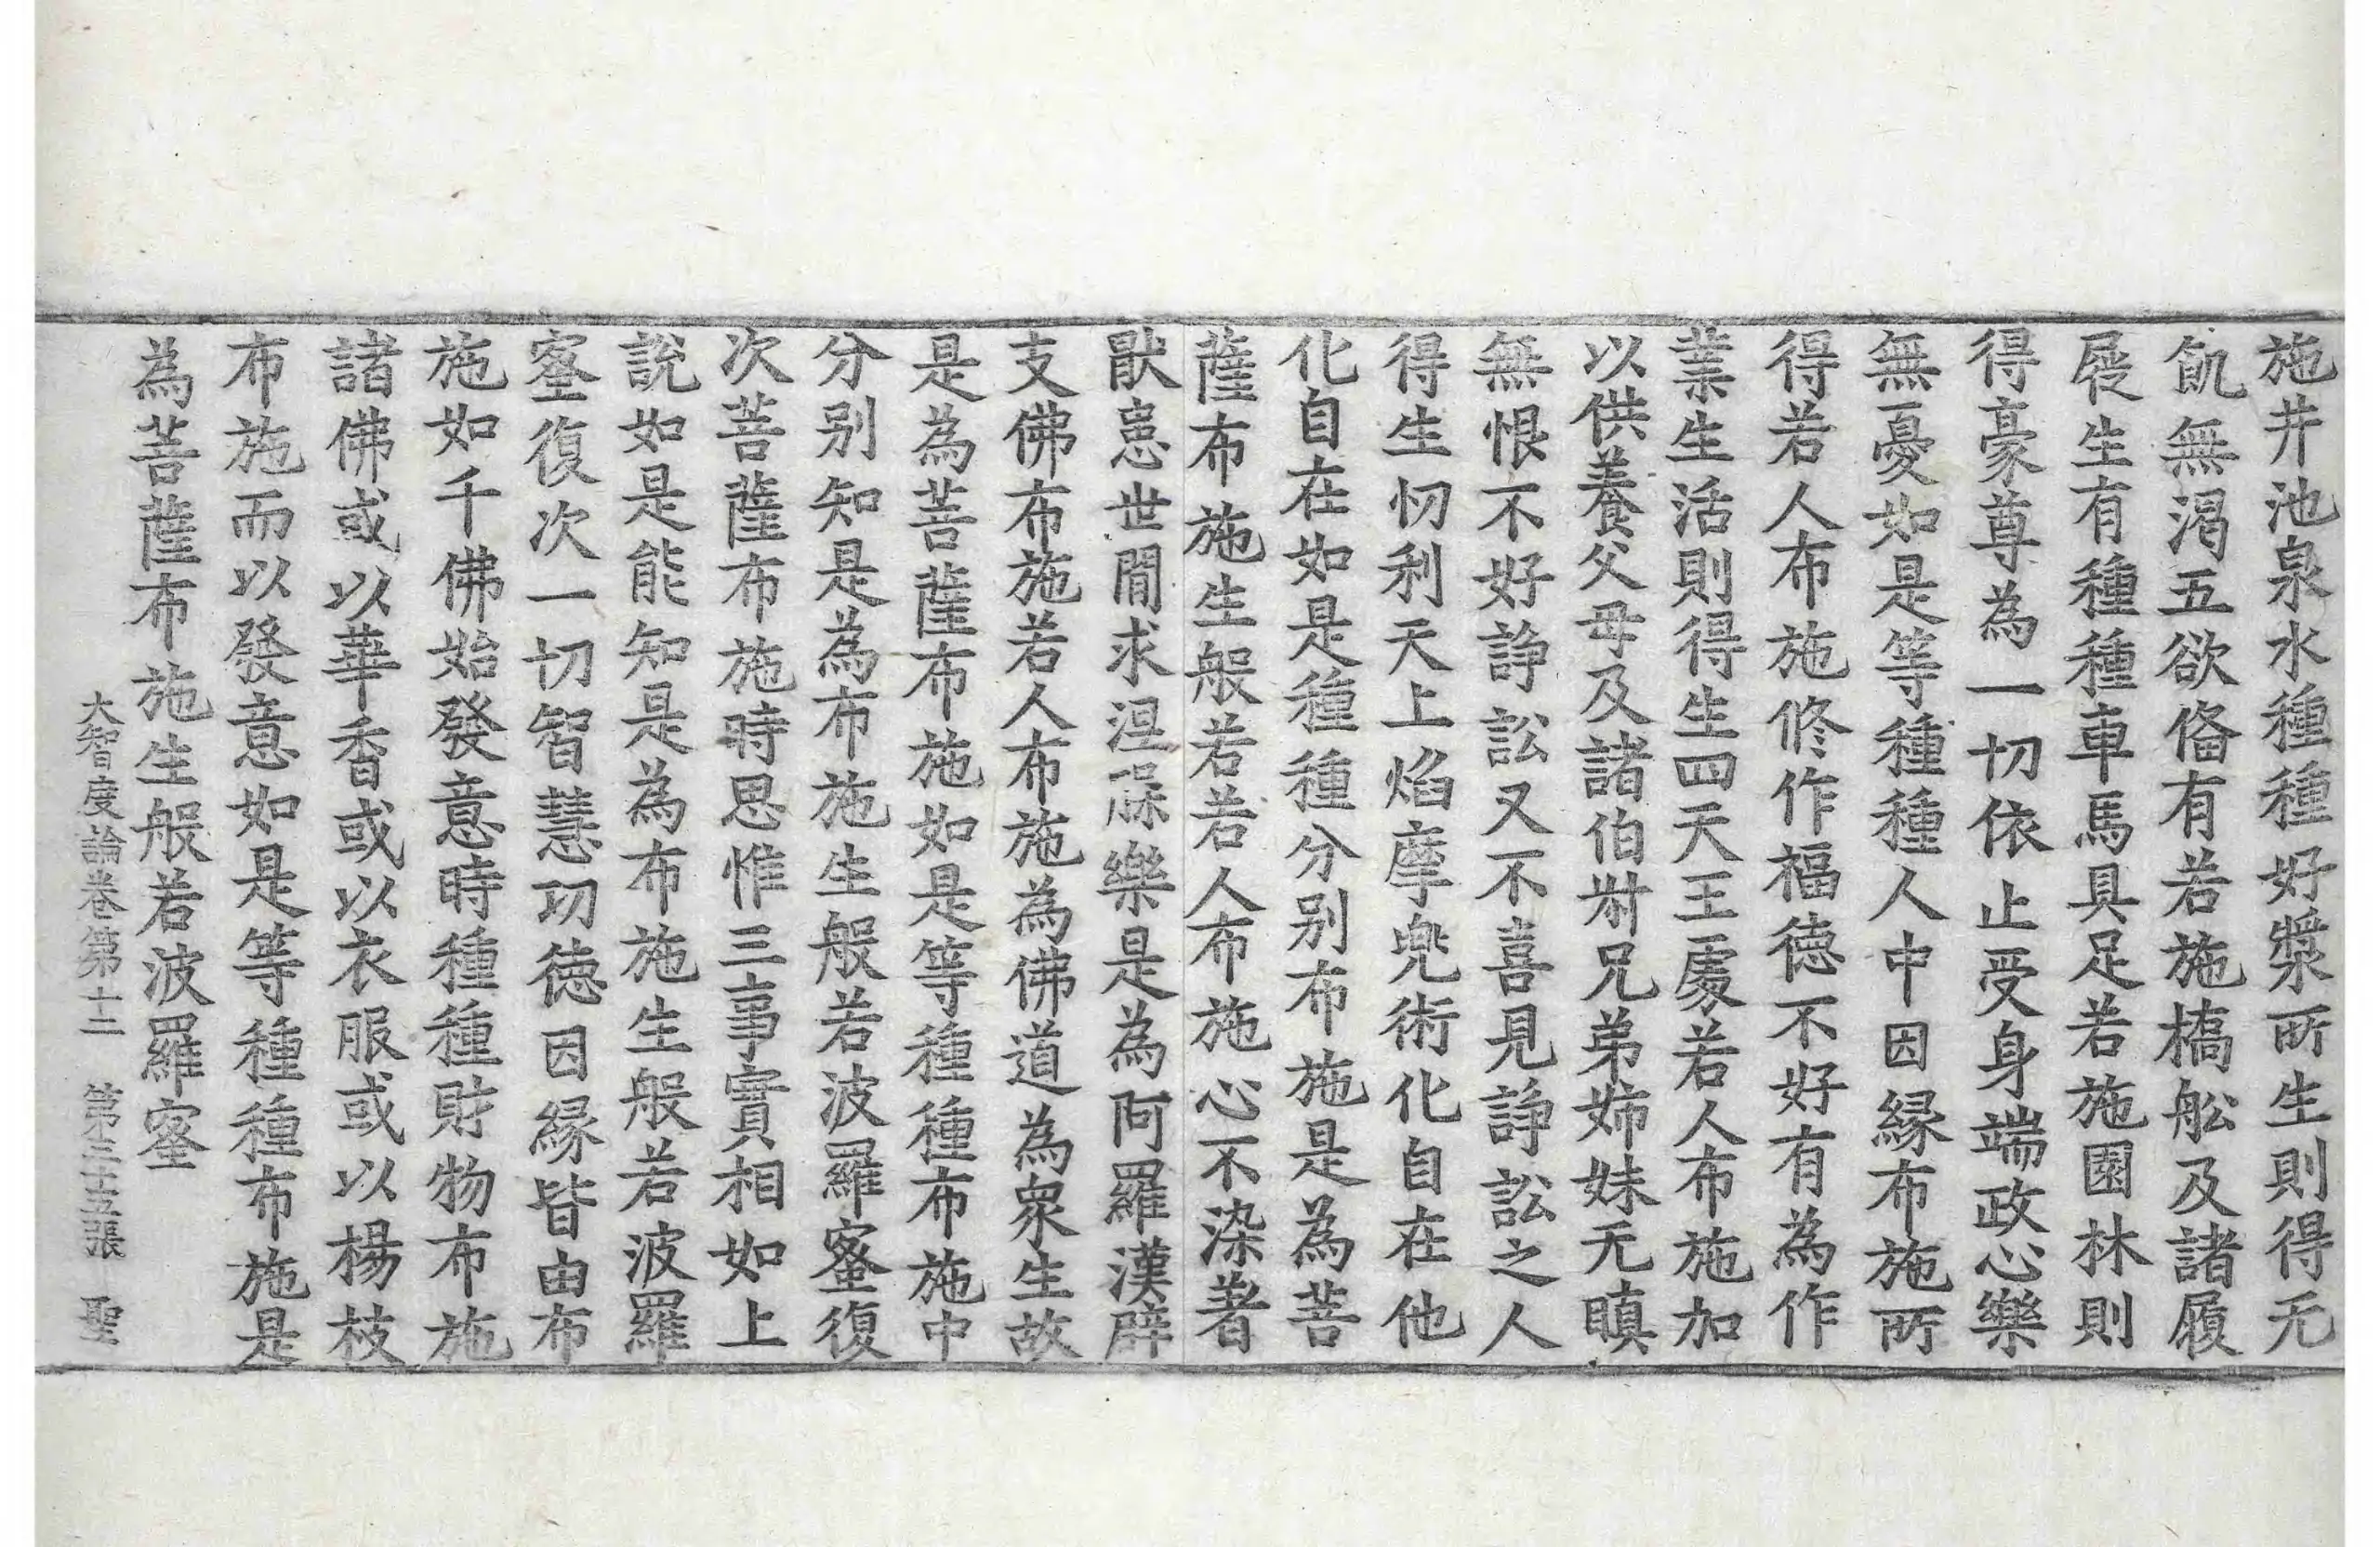 施井池泉水種種好漿所生則得无
飢無渴五欲俻有若施橋舩及諸履
屐生有種種車馬具足若施園林則
得豪尊為一切依止受身端政心樂
無憂如是等種種人中因緣布施所
得若人布施修作福德不好有為作
業生活則得生四天王處若人布施加
以供養父母及諸伯叔兄弟姊妹无瞋
無恨不好諍訟又不喜見諍訟之人
得生忉利天上焰摩兜術化自在他
化自在如是種種分别布施是為菩
薩布施生般若若人布施心不染著
猒患世間求涅槃樂是為阿羅漢辟
支佛布施若人布施為佛道為衆生故
是為菩薩布施如是等種種布施中
分别知是為布施生般若波羅蜜復
次菩薩布施時思惟三事實相如上
說如是能知是為布施生般若波羅
蜜復次一切智慧功德因緣皆由布
施如千佛始發意時種種財物布施
諸佛或以華香或以衣服或以楊枝
布施而以發意如是等種種布施是
為菩薩布施生般若波羅蜜
大智度論卷第十二 第三十五張 聖